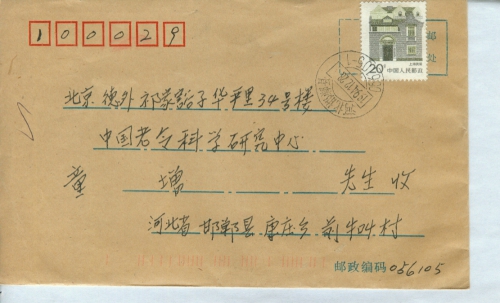 100029
邮
处
20分 中国人民邮政
北京 德外 祁家豁子 华严里 34号楼
中国老年科学研究中心
黄 增 先生 收
河北省 邯郸县 康庄乡 村
邮政编码 056105